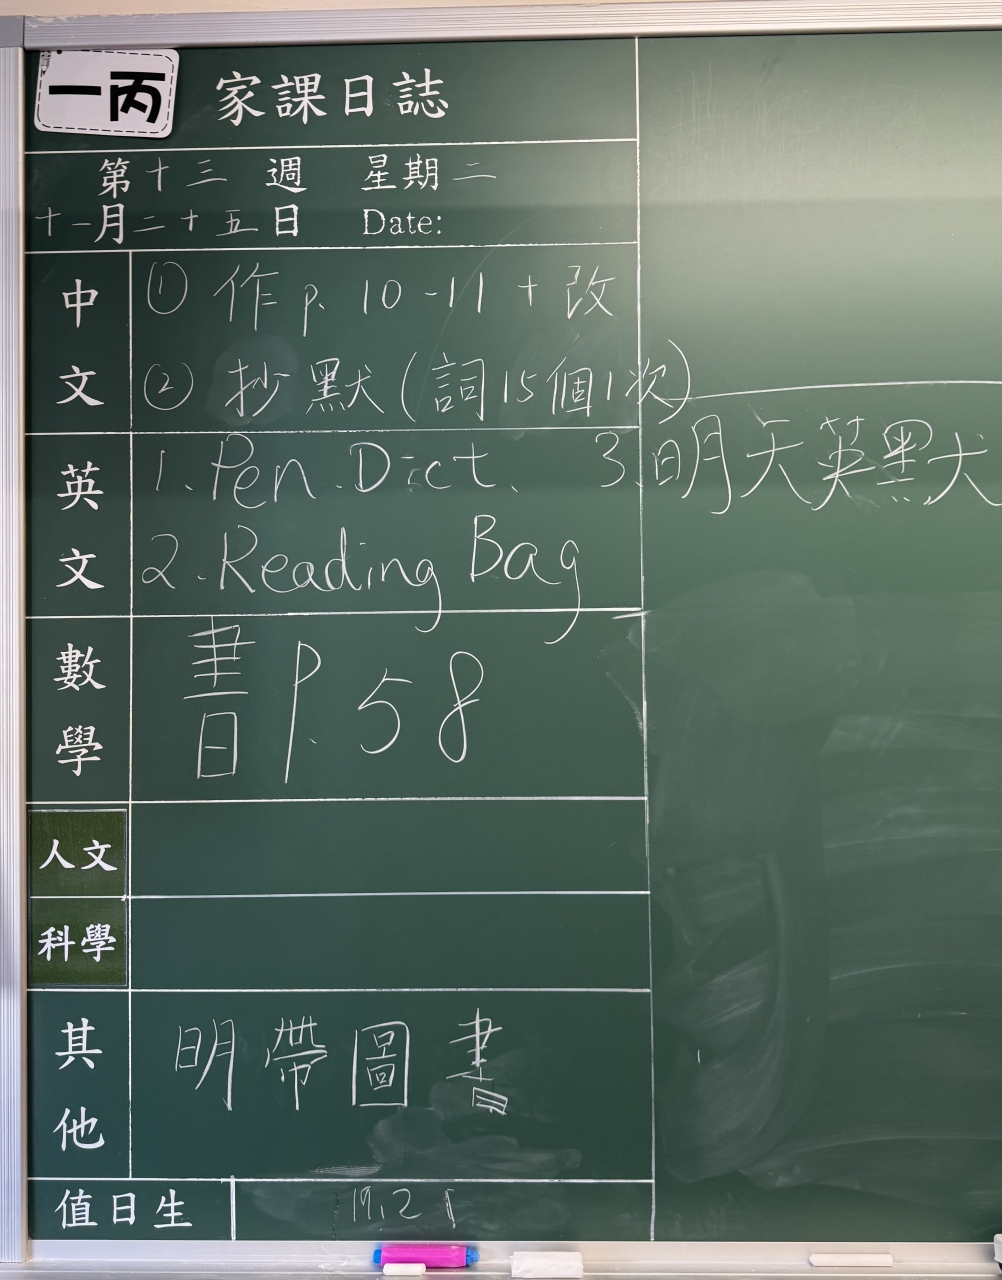 一丙 家課日誌
第十三週 星期二
十一月二十五日 Date:
中文
① 作 p. 10-11 + 改
② 抄默(詞15個1次)
英文
1. Pen. Dict. 3. 明天英默
2. Reading Bag
數學
書 p. 58
人文
科學
其他
明帶圖書
值日生